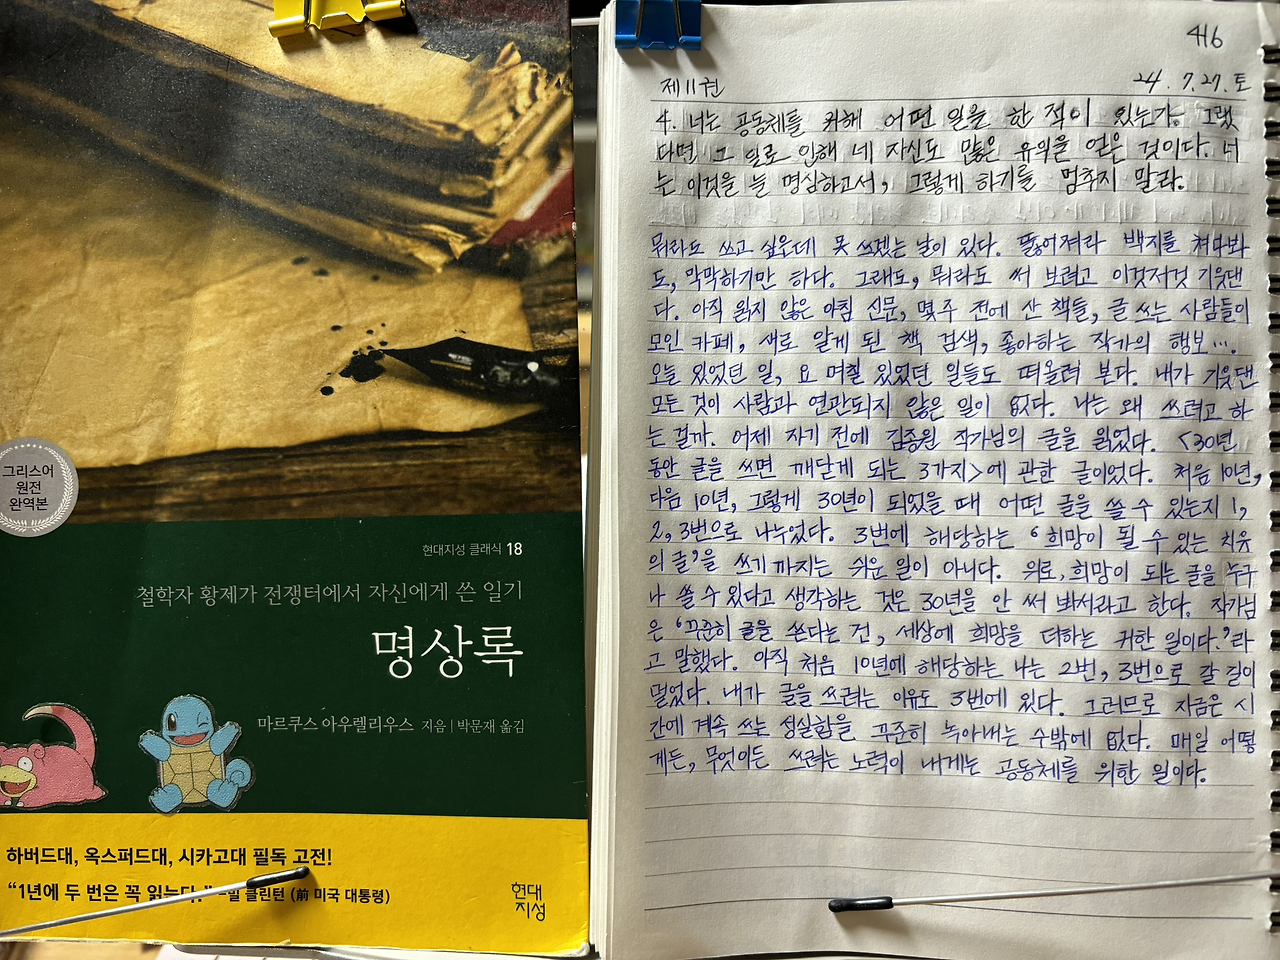 그리스어
원전
완역본
현대지성 클래식 18
철학자 황제가 전쟁터에서 자신에게 쓴 일기
명상록
마르쿠스 아우렐리우스 지음 | 박문재 옮김
하버드대, 옥스퍼드대, 시카고대 필독 고전!
“1년에 두 번은 꼭 읽는다.” -빌 클린턴 (前 미국 대통령)
현대
지성
416
제11권 24. 7. 27. 토
4. 너는 공동체를 위해 어떤 일을 한 적이 있는가. 그랬
다면 그 일로 인해 네 자신도 많은 유익을 얻은 것이다. 너
는 이것을 늘 명심하고서, 그렇게 하기를 멈추지 말라.
뭐라도 쓰고 싶은데 못 쓰겠는 날이 있다. 뚫어져라 백지를 쳐다봐
도, 막막하기만 하다. 그래도, 뭐라도 써 보려고 이것저것 기웃댄
다. 아직 읽지 않은 아침 신문, 몇 주 전에 산 책들, 글 쓰는 사람들이
모인 카페, 새로 알게 된 책 검색, 좋아하는 작가의 행보….
오늘 있었던 일, 요 며칠 있었던 일들도 떠올려 본다. 내가 기웃댄
모든 것이 사람과 연관되지 않은 일이 없다. 나는 왜 쓰려고 하
는 걸까. 어제 자기 전에 김종원 작가님의 글을 읽었다. <30년
동안 글을 쓰면 깨닫게 되는 3가지>에 관한 글이었다. 처음 10년,
다음 10년, 그렇게 30년이 되었을 때 어떤 글을 쓸 수 있는지 1,
2, 3번으로 나누었다. 3번에 해당하는 ‘희망이 될 수 있는 치유
의 글’을 쓰기까지는 쉬운 일이 아니다. 위로, 희망이 되는 글을 누구
나 쓸 수 있다고 생각하는 것은 30년을 안 써 봐서라고 한다. 작가님
은 ‘꾸준히 글을 쓴다는 건, 세상에 희망을 더하는 귀한 일이다.’라
고 말했다. 아직 처음 10년에 해당하는 나는 2번, 3번으로 갈 길이
멀었다. 내가 글을 쓰려는 이유도 3번에 있다. 그러므로 지금은 시
간에 계속 쓰는 성실함을 꾸준히 녹아내는 수밖에 없다. 매일 어떻
게든, 무엇이든 쓰려는 노력이 내게는 공동체를 위한 일이다.